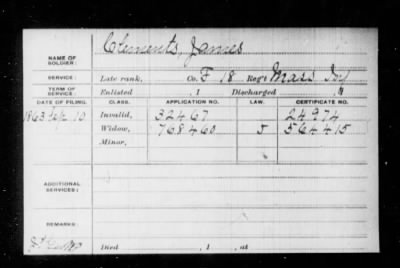 NAME OF SOLDIER: Clements, James
SERVICE: Late rank, Co. F 18 Reg't Mass Inf
TERM OF SERVICE: Enlisted , 1 Discharged , 1
DATE OF FILING. CLASS. APPLICATION NO. LAW. CERTIFICATE NO.
1863 Sep 10 Invalid, 32467 24974
Widow, 768460 J 564415
Minor,
ADDITIONAL SERVICES:
REMARKS:
Died , 1 , at